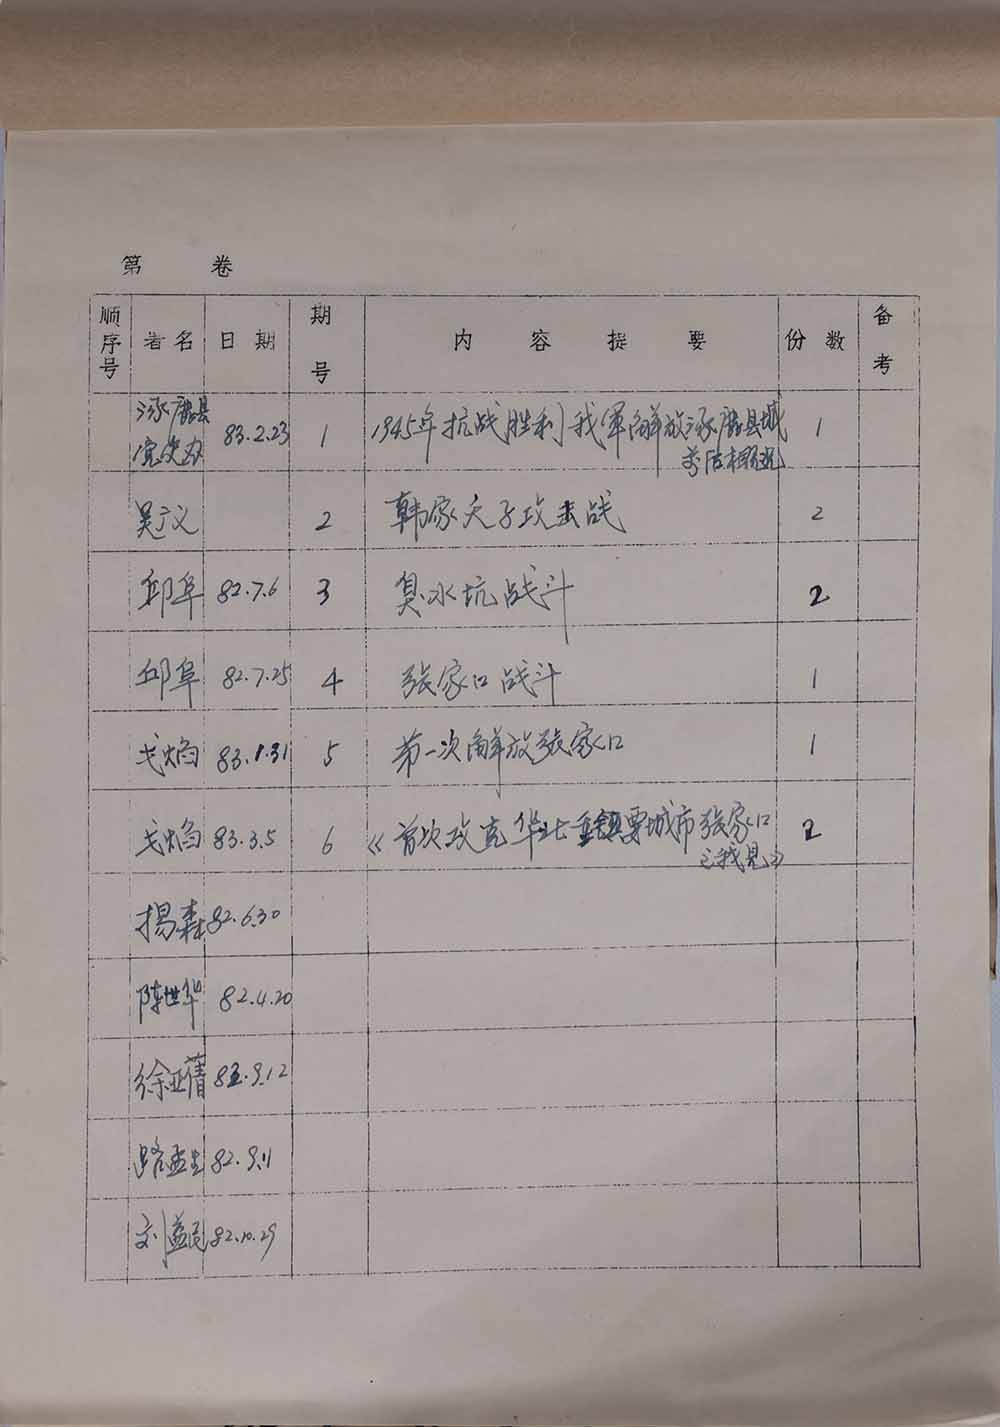 第 卷
顺序号 著名 日期 期号 内容提要 份数 备考
涿鹿县党史办 83.2.23 1 1945年抗战胜利我军解放涿鹿县城 1
前后概况
吴广义 2 韩家天子攻击战 2
邱阜 82.7.6 3 臭水坑战斗 2
邱阜 82.7.25 4 张家口战斗 1
戈焰 83.1.31 5 第一次解放张家口 1
戈焰 83.3.5 6 《首次攻克华北重镇要城市张家口 2
之我见》
杨森 82.6.30
陈世华 82.4.20
徐亚蒨 82.9.12
路孟生 82.9.11
刘益民 82.10.29